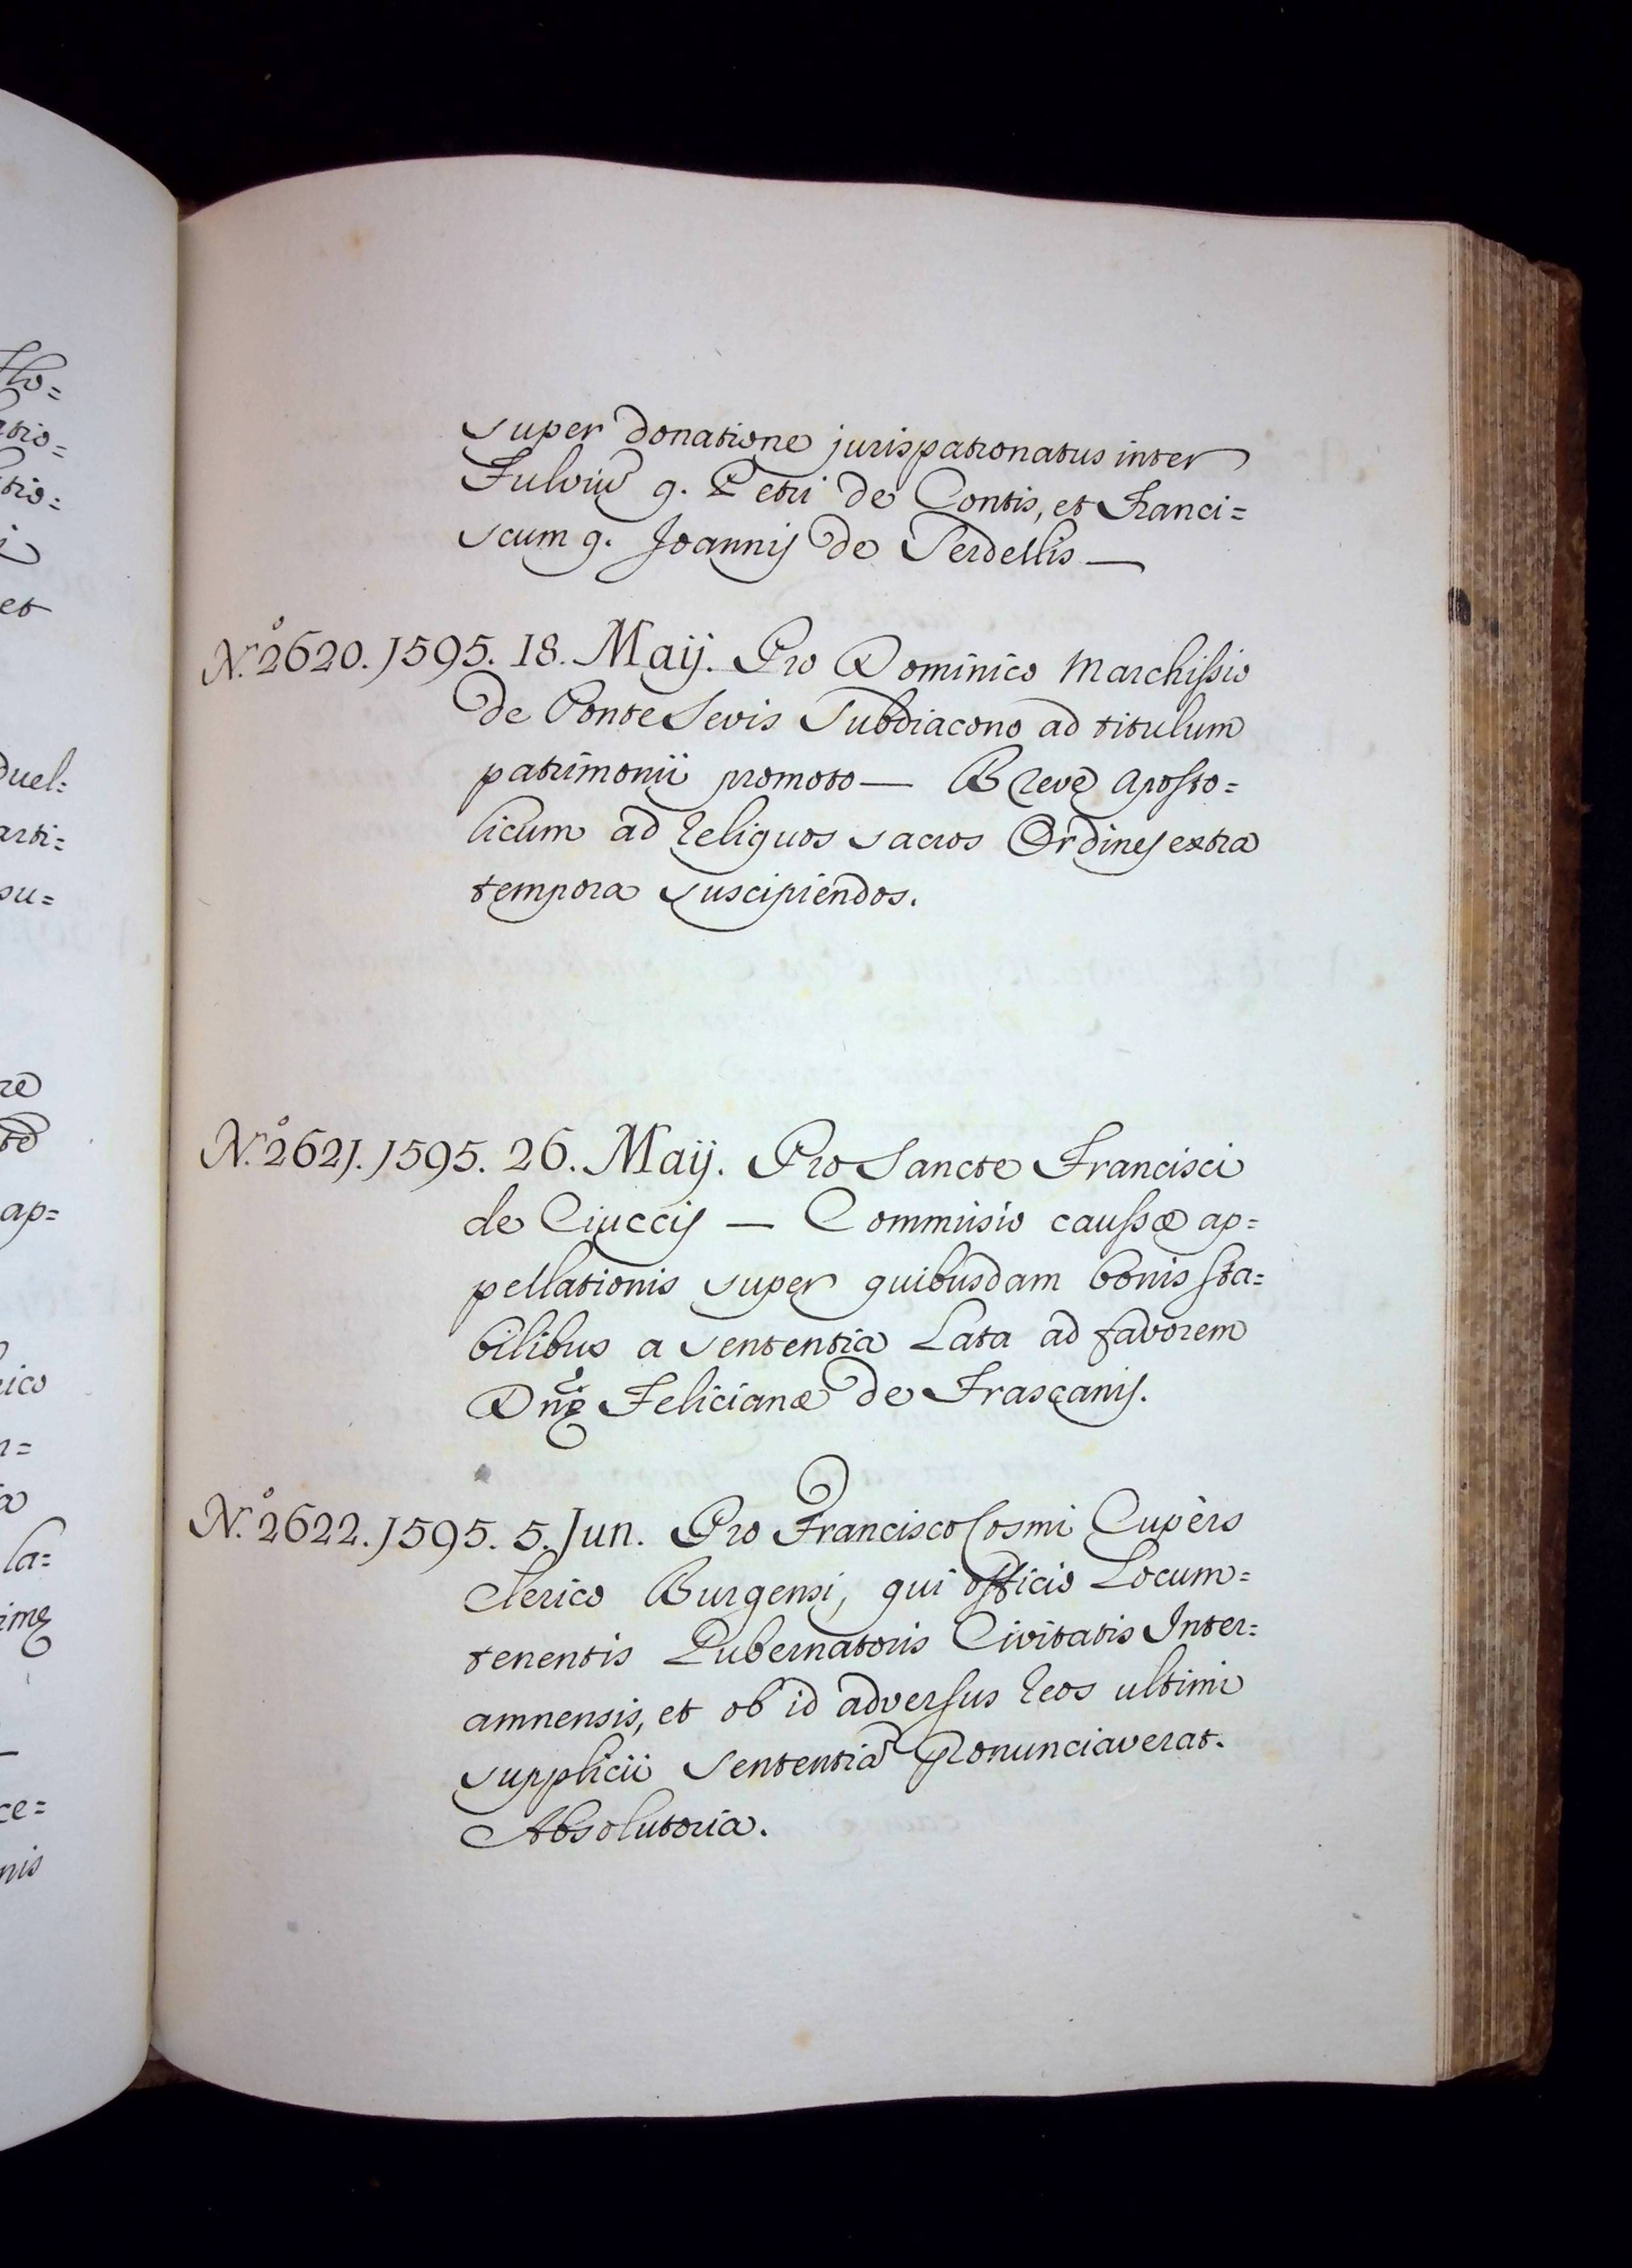 super donatione jurispatronatus inter
Fulviũ q. Petri de Contis, et Franci=
scum q. Joannis de Serdellis —
N.º 2620. 1595. 18. Maij. Pro Dominico Marchissio
de Ponte Sevis Subdiacono ad titulum
patrimonii promoto — Breve Aposto=
licum ad reliquos sacros Ordines extra
tempora suscipiendos.
N.º 2621. 1595. 26. Maij. Pro Sancte Francisci
de Ciuccis — Commissio caussæ ap=
pellationis super quibusdam bonis sta=
bilibus a sententia lata ad favorem
Dnę Felicianæ de Frascanis.
N.º 2622. 1595. 5. Jun. Pro Francisco Cosmi Cupèrs
Clerico Burgensi, qui officio Locum=
tenentis Gubernatoris Civitatis Inter=
amnensis, et ob id adversus reos ultimi
supplicii sententiã pronunciaverat.
Absolutoria.
et
duel=
arti=
su=
re
ap=
ico
la=
ce=
nis